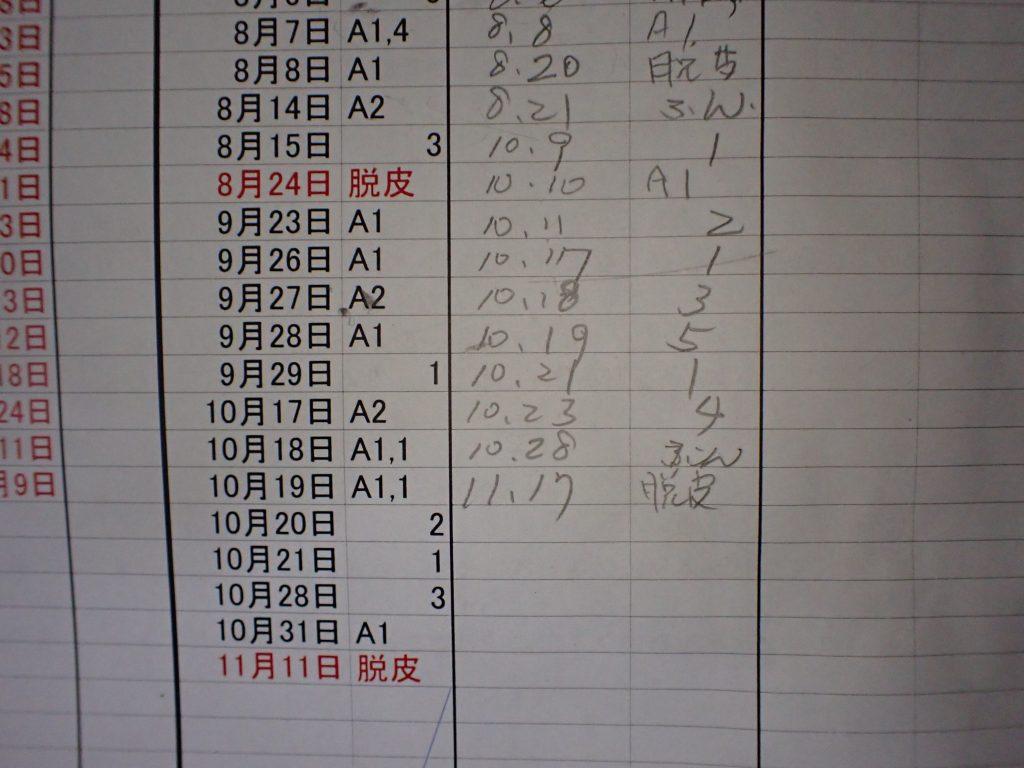 8月7日 A1,4 8.8 A1
3日
8月8日 A1 8.20 脱皮
5日
8月14日 A2 8.21 ふん.
8日
8月15日 3 10.9 1
4日
8月24日 脱皮 10.10 A1
1日
9月23日 A1 10.11 2
3日
9月26日 A1 10.17 1
0日
9月27日 A2 10.18 3
3日
9月28日 A1 10.19 5
12日
9月29日 1 10.21 1
18日
10月17日 A2 10.23 4
24日
10月18日 A1,1 10.28 ふん
11日
10月19日 A1,1 11.17 脱皮
月9日
10月20日 2
10月21日 1
10月28日 3
10月31日 A1
11月11日 脱皮